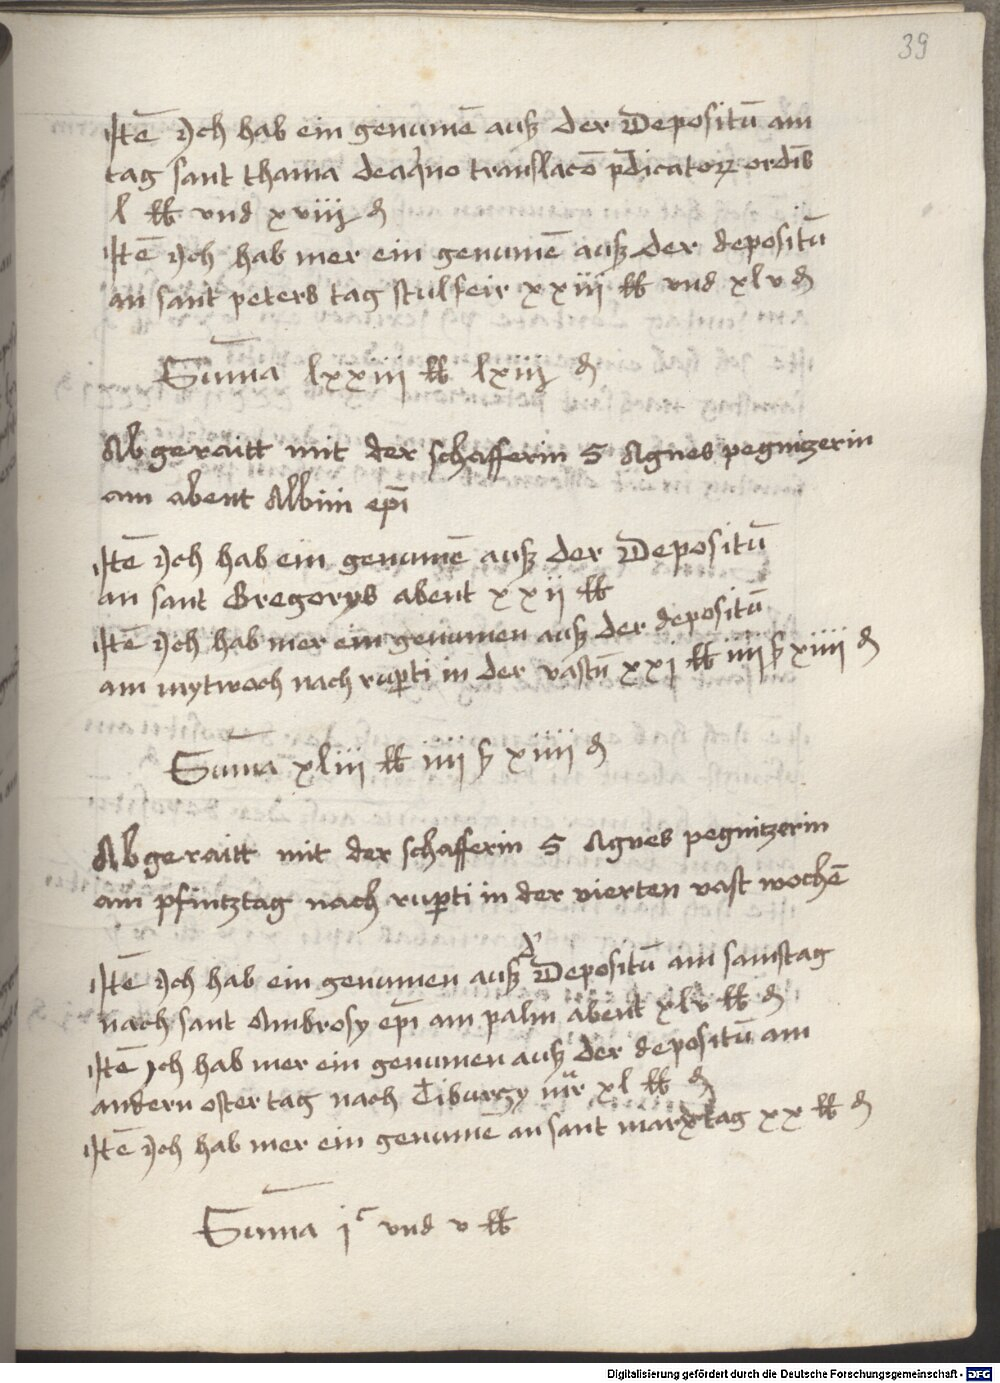 39
Itē ich hab ein genumē auß der Depositū am
tag sant thama deaq̄no translacō p̄dicatorꝝ ordīs
l lb vnd xviij ₰
Itē ich hab mer ein genumē auß der depositū
an sant peters tag stulfeir xxiii lb vnd xlv ₰
Suma lxxiii lb lxiij ₰
Abgeraitt mit der schafferin S Agnes pegnizerin
am abent Albini ep̄i
Itē ich hab ein genumē auß der Depositū
an sant Gregorys abent xxii lb
Itē ich hab mer ein genumen auß der depositū
am mytwoch nach rup̄ti in der vastn̄ xxj lb iiij ß xiiii ₰
Suma xliii lb iiij ß xiiii ₰
Abgeraitt mit der schafferin S Agnes pegnitzerin
am pfintztag nach rup̄ti in der vierten vast wochē
Itē ich hab ein genumen auß d' Depositū am samstag
nach sant Ambrosy ep̄i am palm abent xlv lb ₰
Itē ich hab mer ein genumen auß der depositū am
andern oster tag nach Tiburzy mr̄ xl lb ₰
Itē ich hab mer ein genumē an sant marxtag xx lb ₰
Suma jᶜ vnd v lb
Digitalisierung gefördert durch die Deutsche Forschungsgemeinschaft - DFG